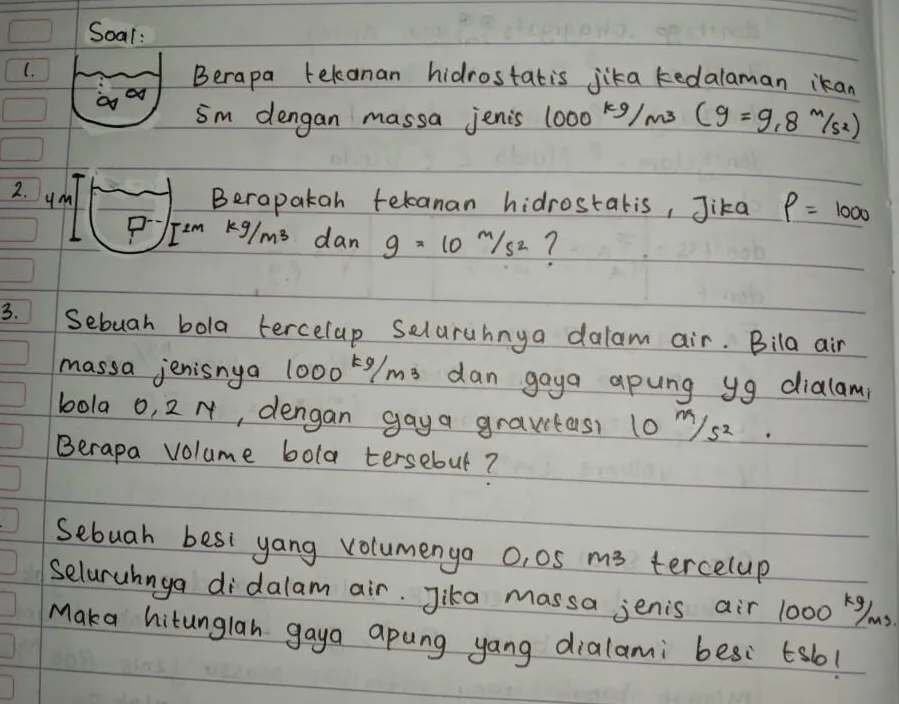 Soal:
1. Berapa tekanan hidrostatis jika kedalaman ikan
5m dengan massa jenis 1000 kg/m3 (g = 9,8 m/s2)
2. 4M Berapakah tekanan hidrostatis, Jika ρ = 1000
I 2m kg/m3 dan g = 10 m/s2 ?
3. Sebuah bola tercelup seluruhnya dalam air. Bila air
massa jenisnya 1000 kg/m3 dan gaya apung yg dialami
bola 0,2 N, dengan gaya gravitasi 10 m/s2.
Berapa volume bola tersebut ?
Sebuah besi yang volumenya 0,05 m3 tercelup
Seluruhnya di dalam air. Jika massa jenis air 1000 kg/m3.
Maka hitunglah gaya apung yang dialami besi tsb!